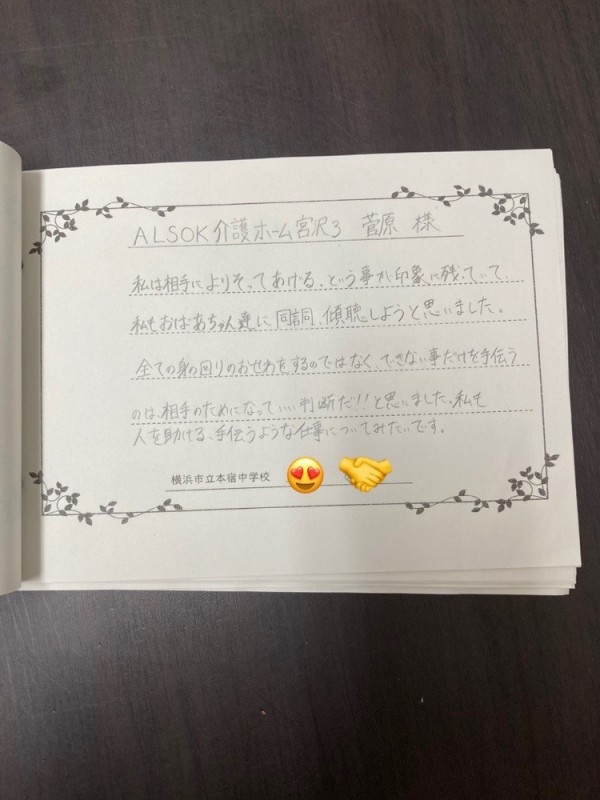 ALSOK介護ホーム宮沢3 菅原 様
私は相手によりそってあげる、という事が印象に残っていて、
私もおばあちゃん達に同調、傾聴しようと思いました。
全ての身の回りのおせわをするのではなく、できない事だけを手伝う
のは相手のためになっていい判断だ!!と思いました。私も
人を助ける、手伝うような仕事についてみたいです。
横浜市立本宿中学校